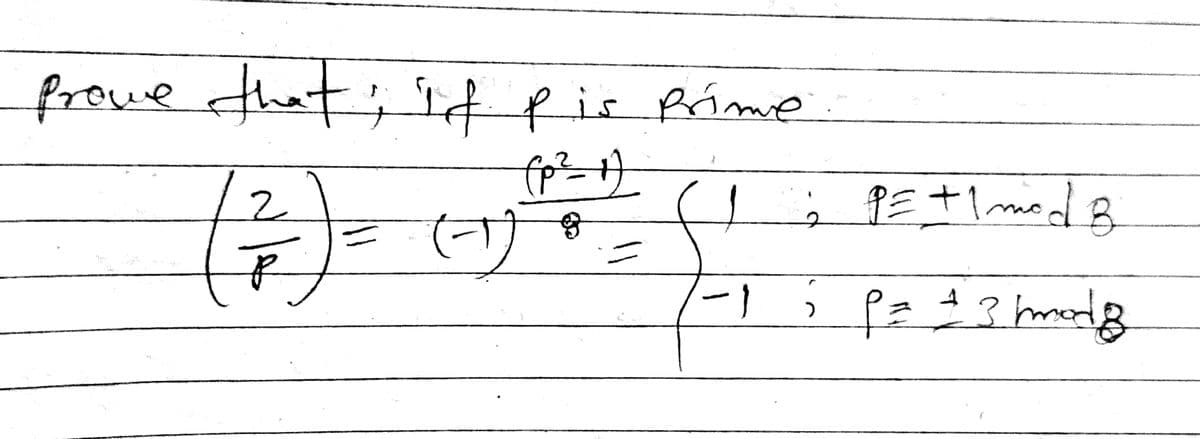 Prove that; if p is Prime.
(2/p) = (-1)^((p²-1)/8) = { 1 ; P≡ ±1 mod 8
-1 ; P≡ ±3 mod 8